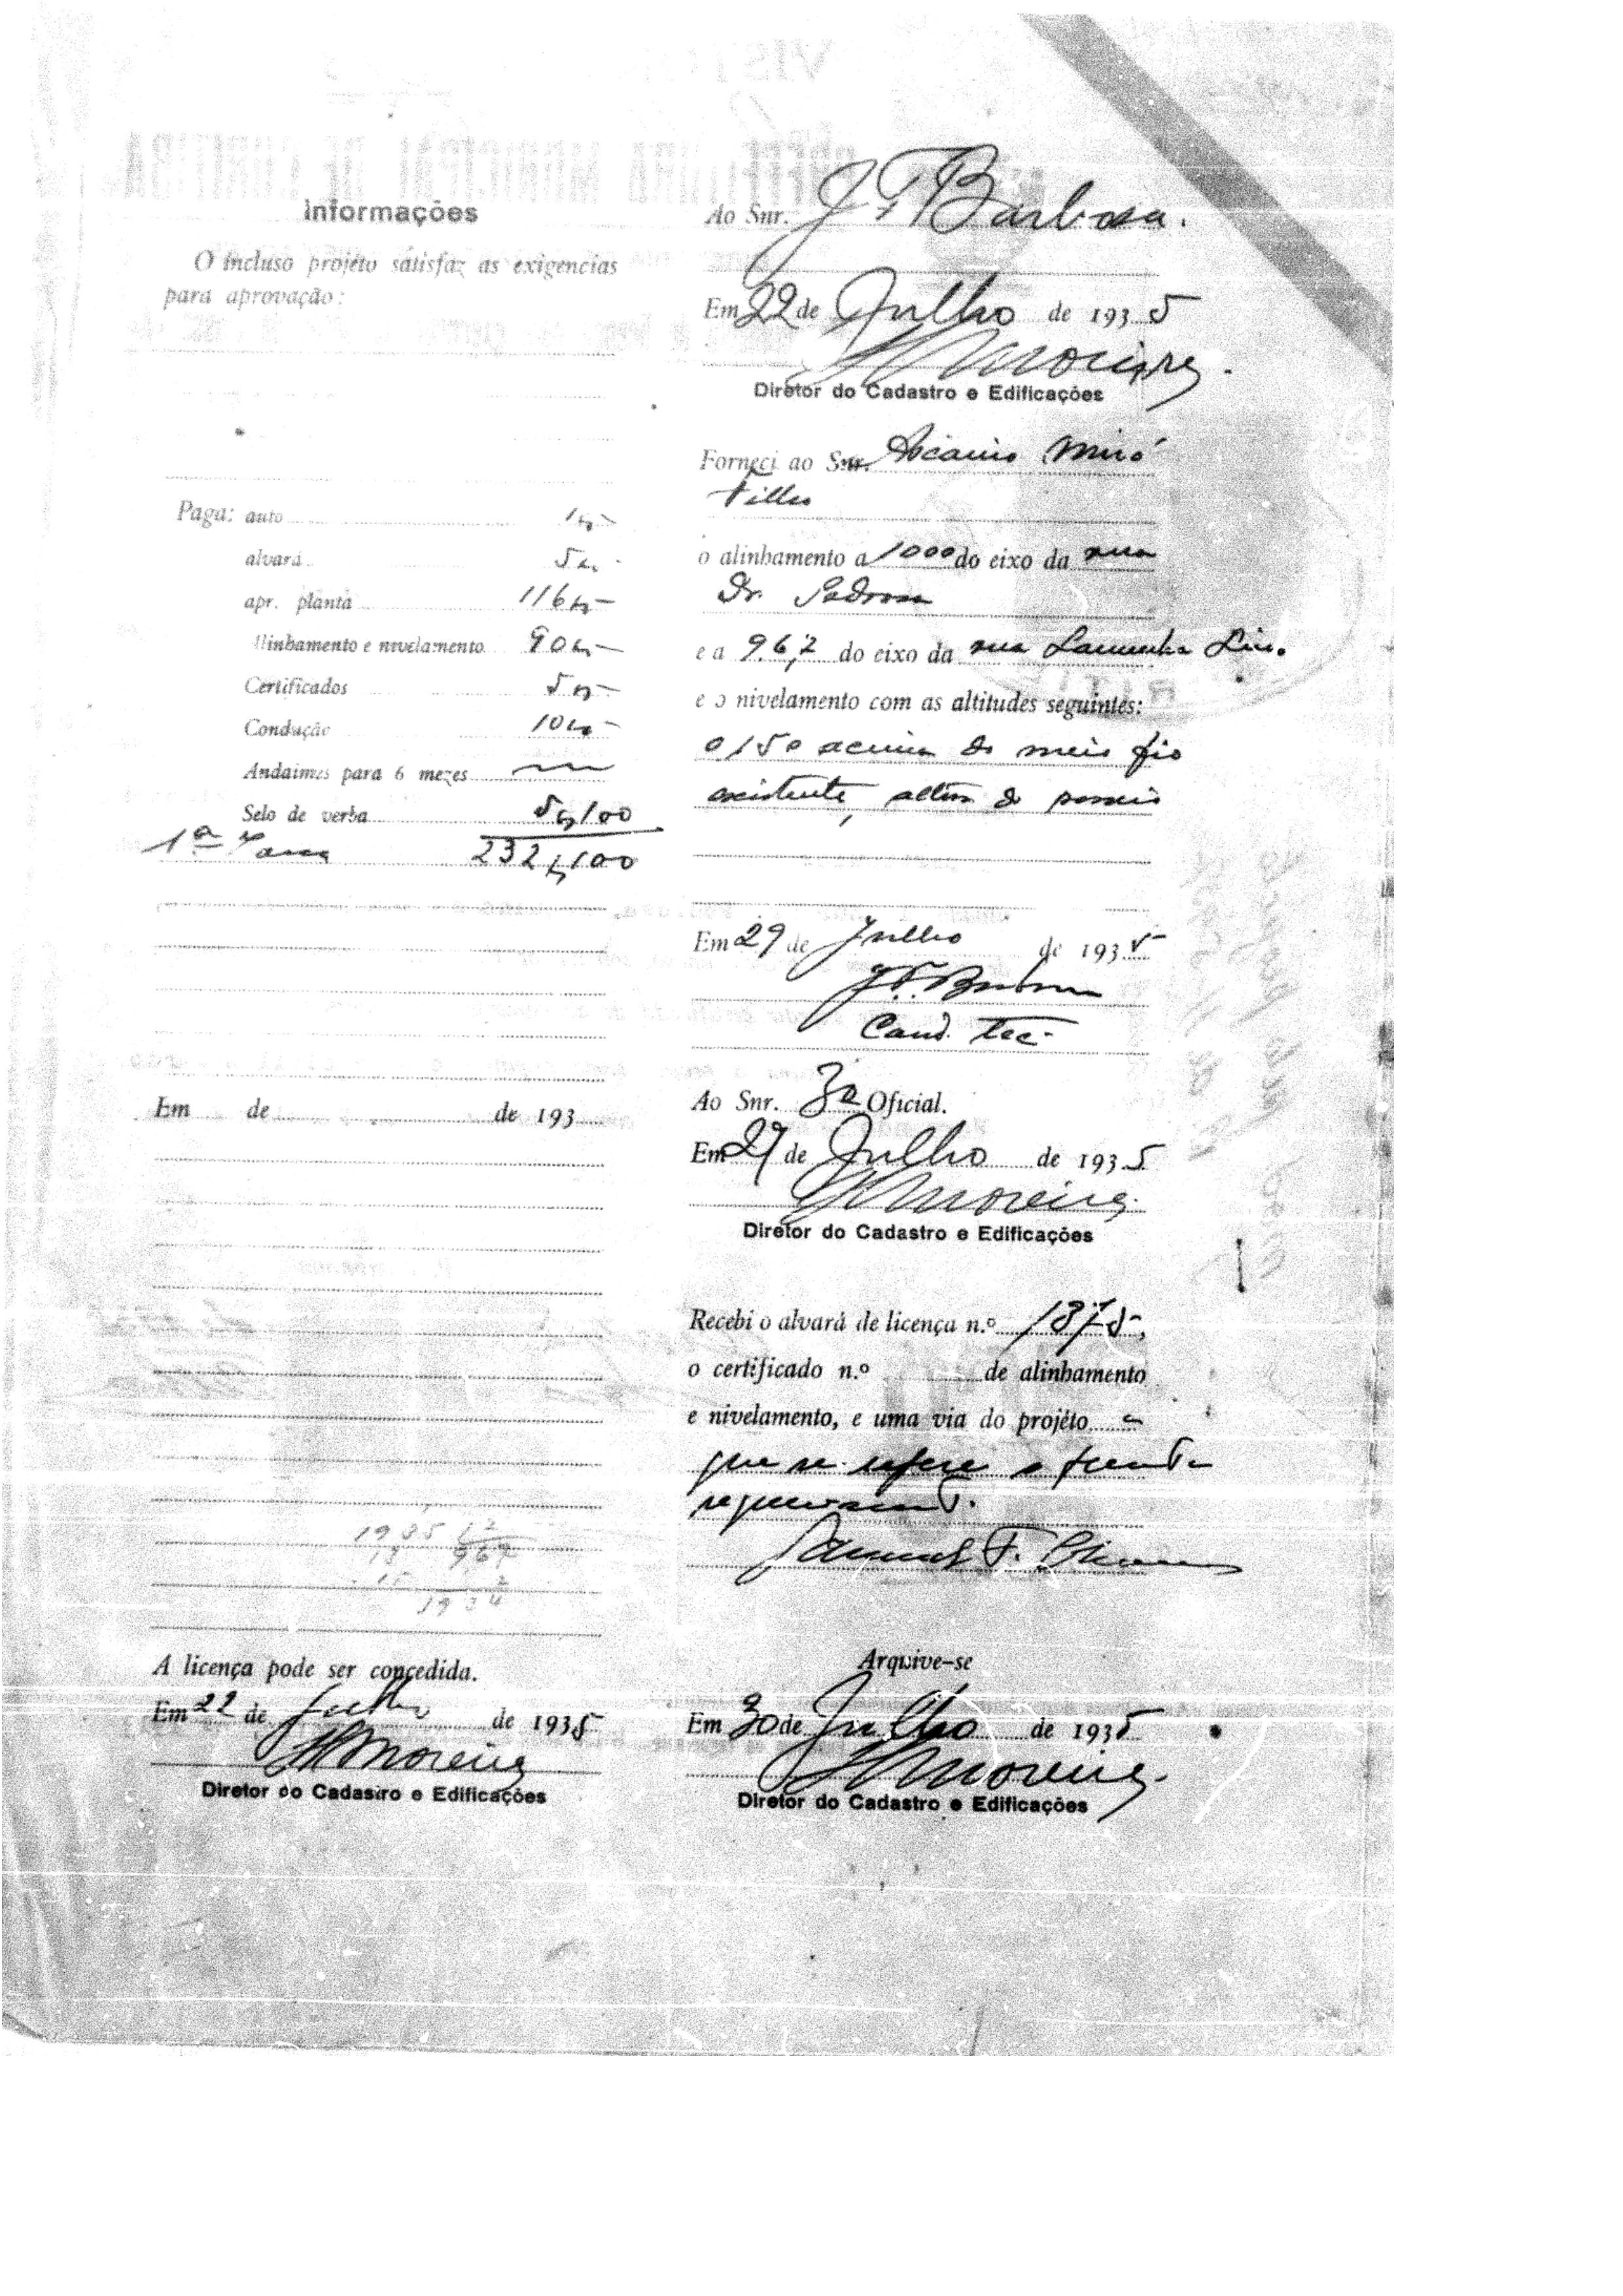 Informações
O incluso projéto satisfaz as exigencias
para aprovação:
Paga: auto 1$-
alvará 5$-
apr. planta 116$-
Alinhamento e nivelamento 90$-
Certificados 5$-
Condução 10$-
Andaimes para 6 mezes
Selo de verba 5$100
1ª
232$100
Em de de 193
1935 12
15 967
15 2
1934
A licença pode ser concedida.
Em 22 de Julho de 1935
HMoreira
Diretor do Cadastro e Edificações
Ao Snr. J F Barbosa.
Em 22 de Julho de 1935
HMoreira.
Diretor do Cadastro e Edificações
Forneci ao Snr. Ascanio Miró
Filho
o alinhamento a 1000 do eixo da rua
Dr. Pedrosa
e a 9.67 do eixo da rua Lamenha Lins.
e o nivelamento com as altitudes seguintes:
0150 acima do meio fio
existente, além do passeio
Em 29 de Julho de 1935
J.F. Barbosa
Cond. Tec.
Ao Snr. 3º Oficial.
Em 29 de Julho de 1935
HMoreira.
Diretor do Cadastro e Edificações
Recebi o alvará de licença n.º 1375,
o certificado n.º de alinhamento
e nivelamento, e uma via do projéto a
que se refere o presente
requerimento.
Samuel F.
Arquive-se
Em 30 de Julho de 1935
HMoreira.
Diretor do Cadastro e Edificações